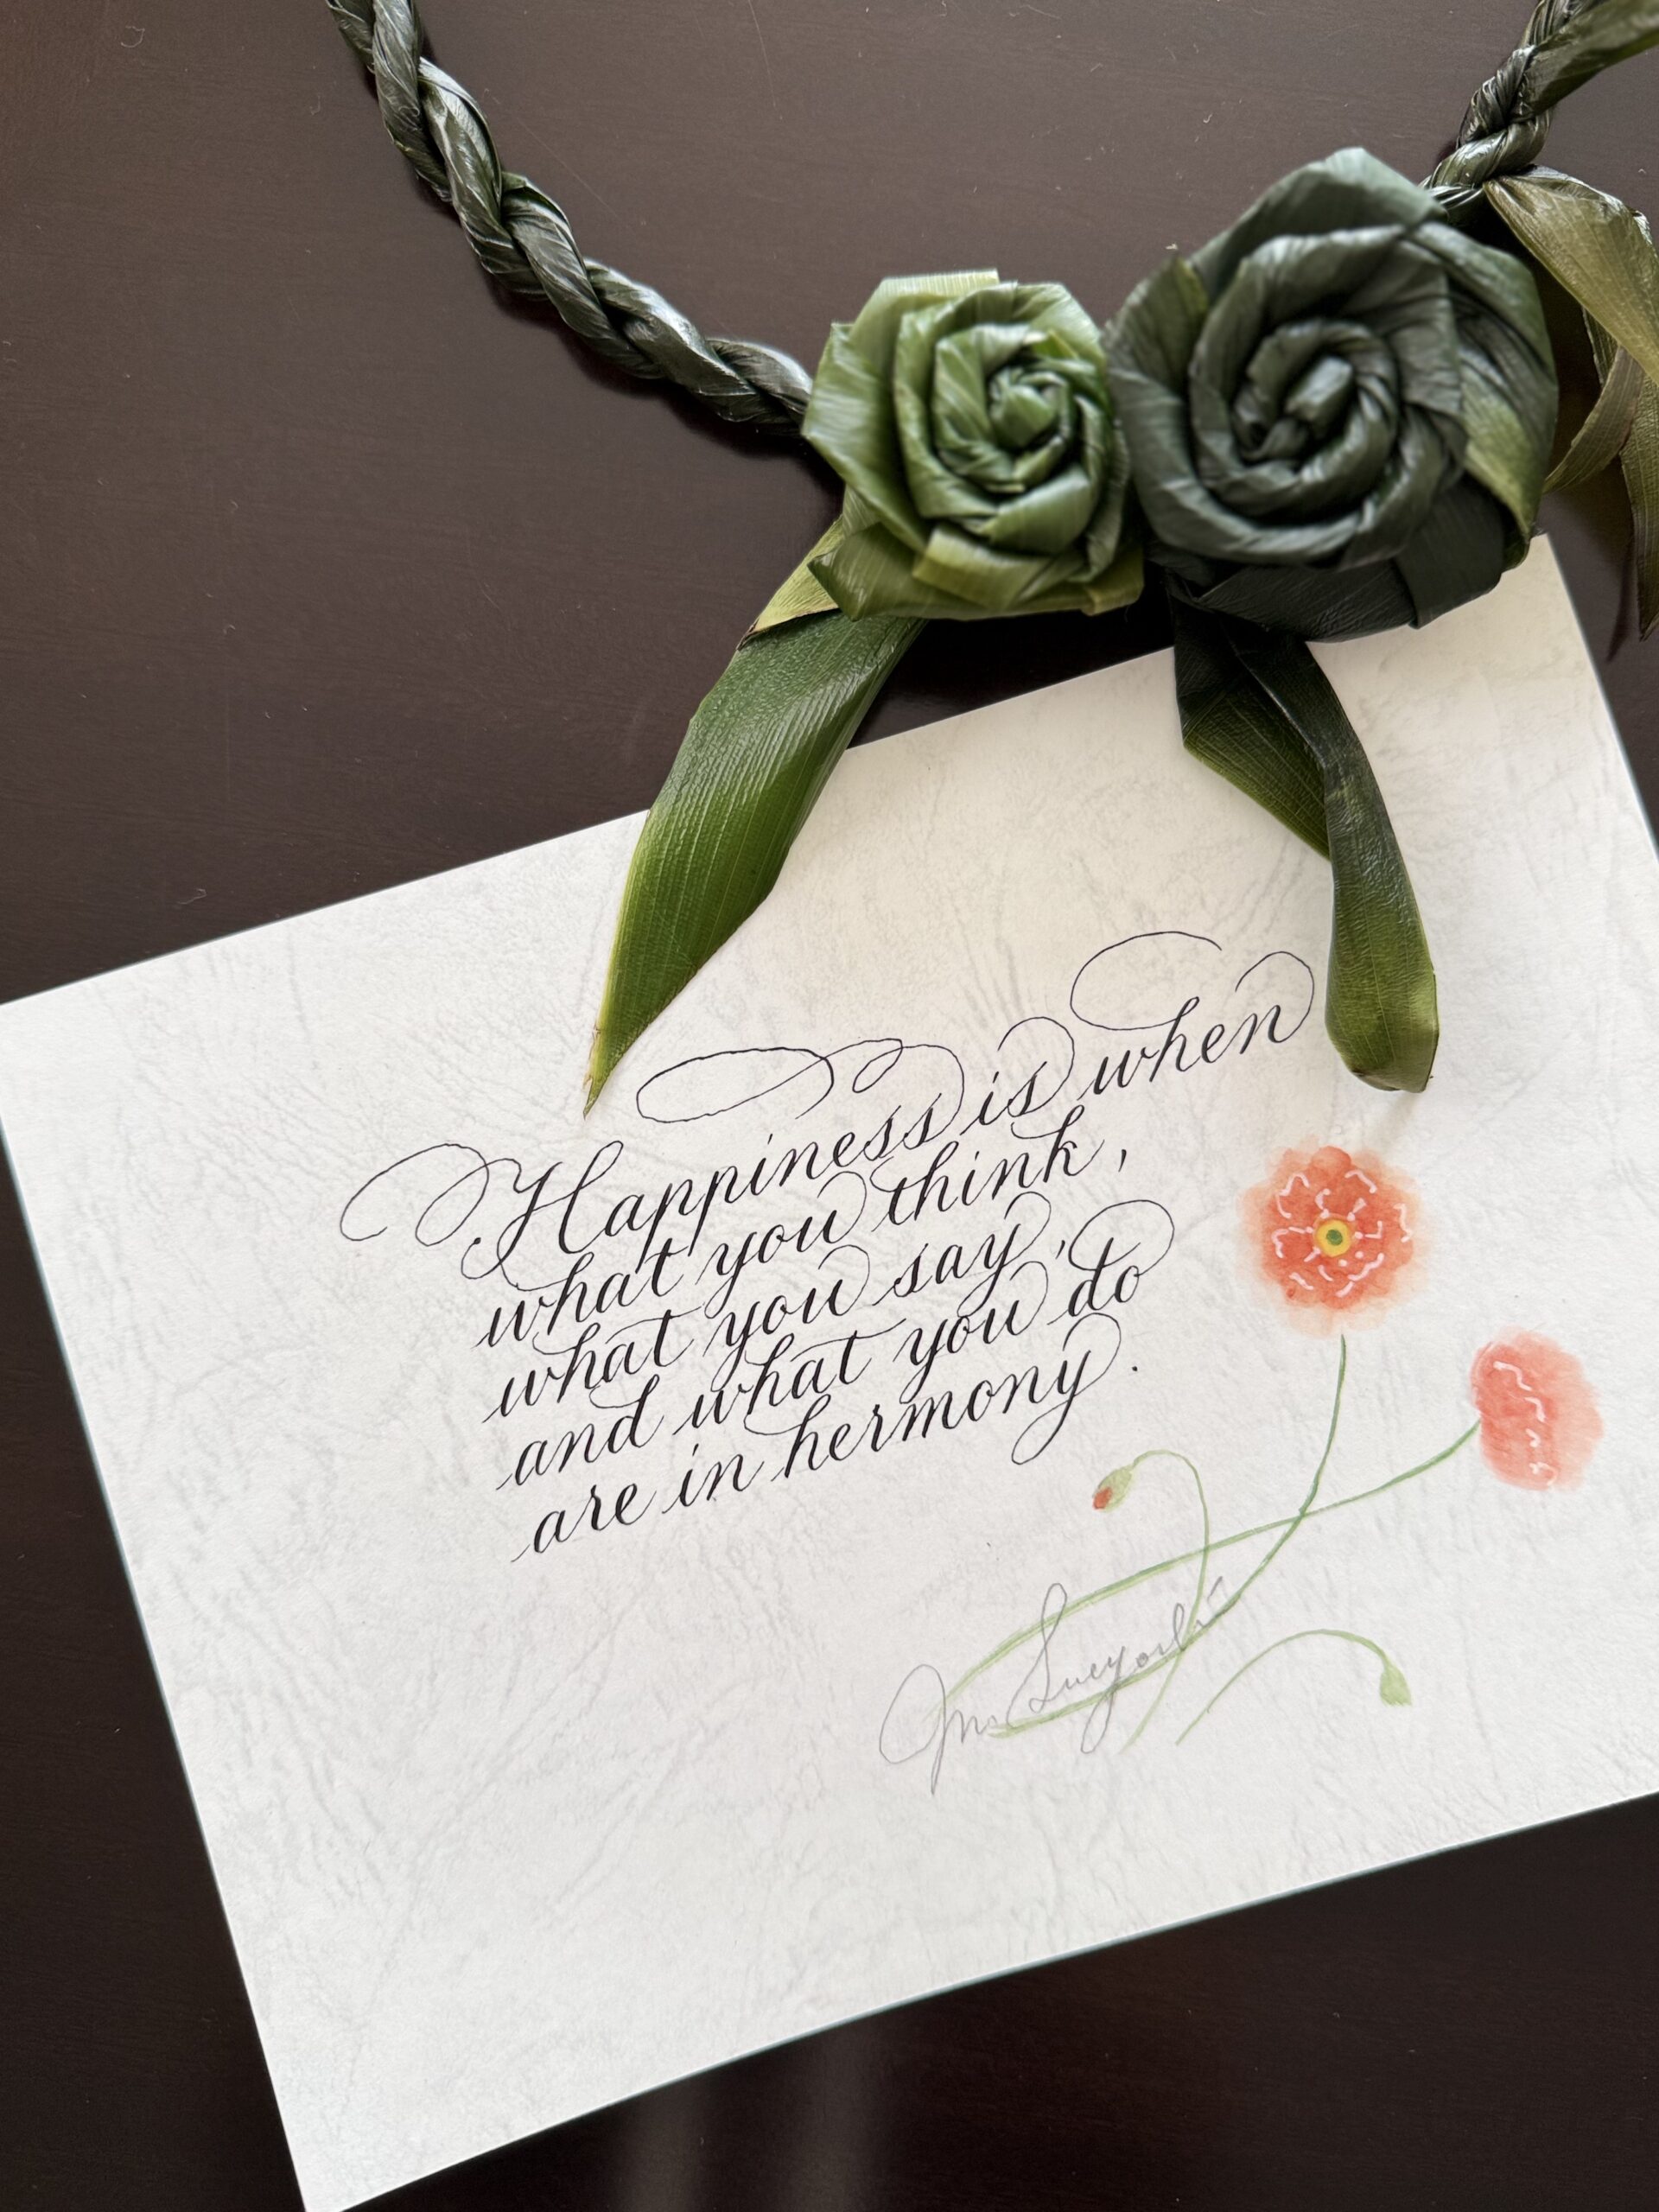 Happiness is when
what you think,
what you say,
and what you do
are in hermony.